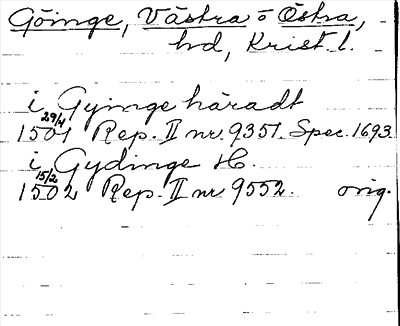 Göinge, Västra o Östra,
hd, Krist. l.
i Gyinge häradt
29/4
1501 Rep. II nr. 9351. Spec. 1693
i Gydinge H.
15/2
1502 Rep. II nr 9552. orig.